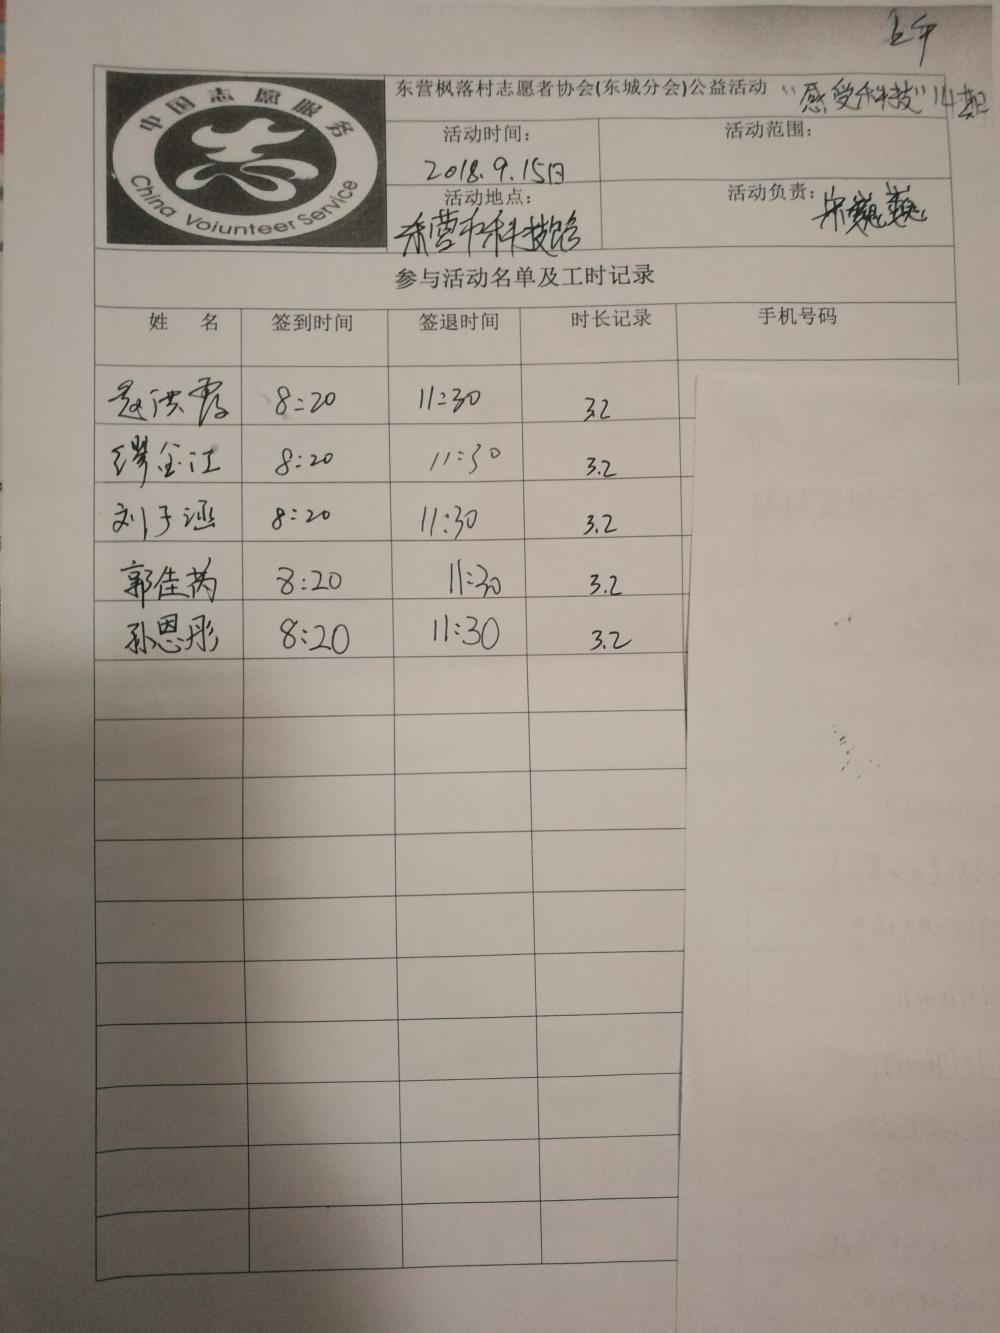 上午
东营枫落村志愿者协会(东城分会)公益活动 "感受科技"14期
中国志愿服务
China Voiunteer Service
活动时间: 活动范围:
2018.9.15日
活动地点: 活动负责: 宋巍巍
东营市科技馆
参与活动名单及工时记录
姓 名 签到时间 签退时间 时长记录 手机号码
赵洪霞 8:20 11:30 3.2
缪金江 8:20 11:30 3.2
刘子涵 8:20 11:30 3.2
郭佳芮 8:20 11:30 3.2
孙恩彤 8:20 11:30 3.2